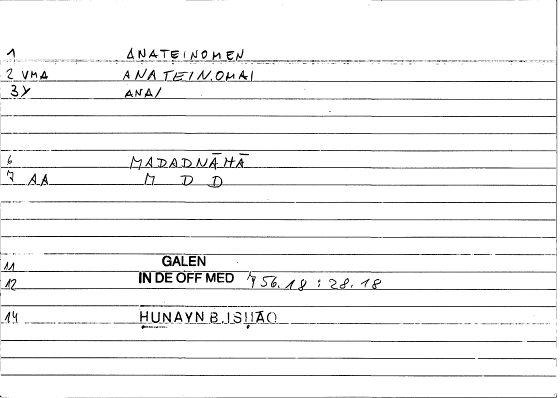 1 ANATEINOMEN
2 VMA ANATEIN.OMAI
3 Y ANA/
6 MADADNĀHĀ
7 AA M D D
11 GALEN
12 IN DE OFF MED 756.18 : 28.18
14 ḤUNAYN B.ISḤĀQ